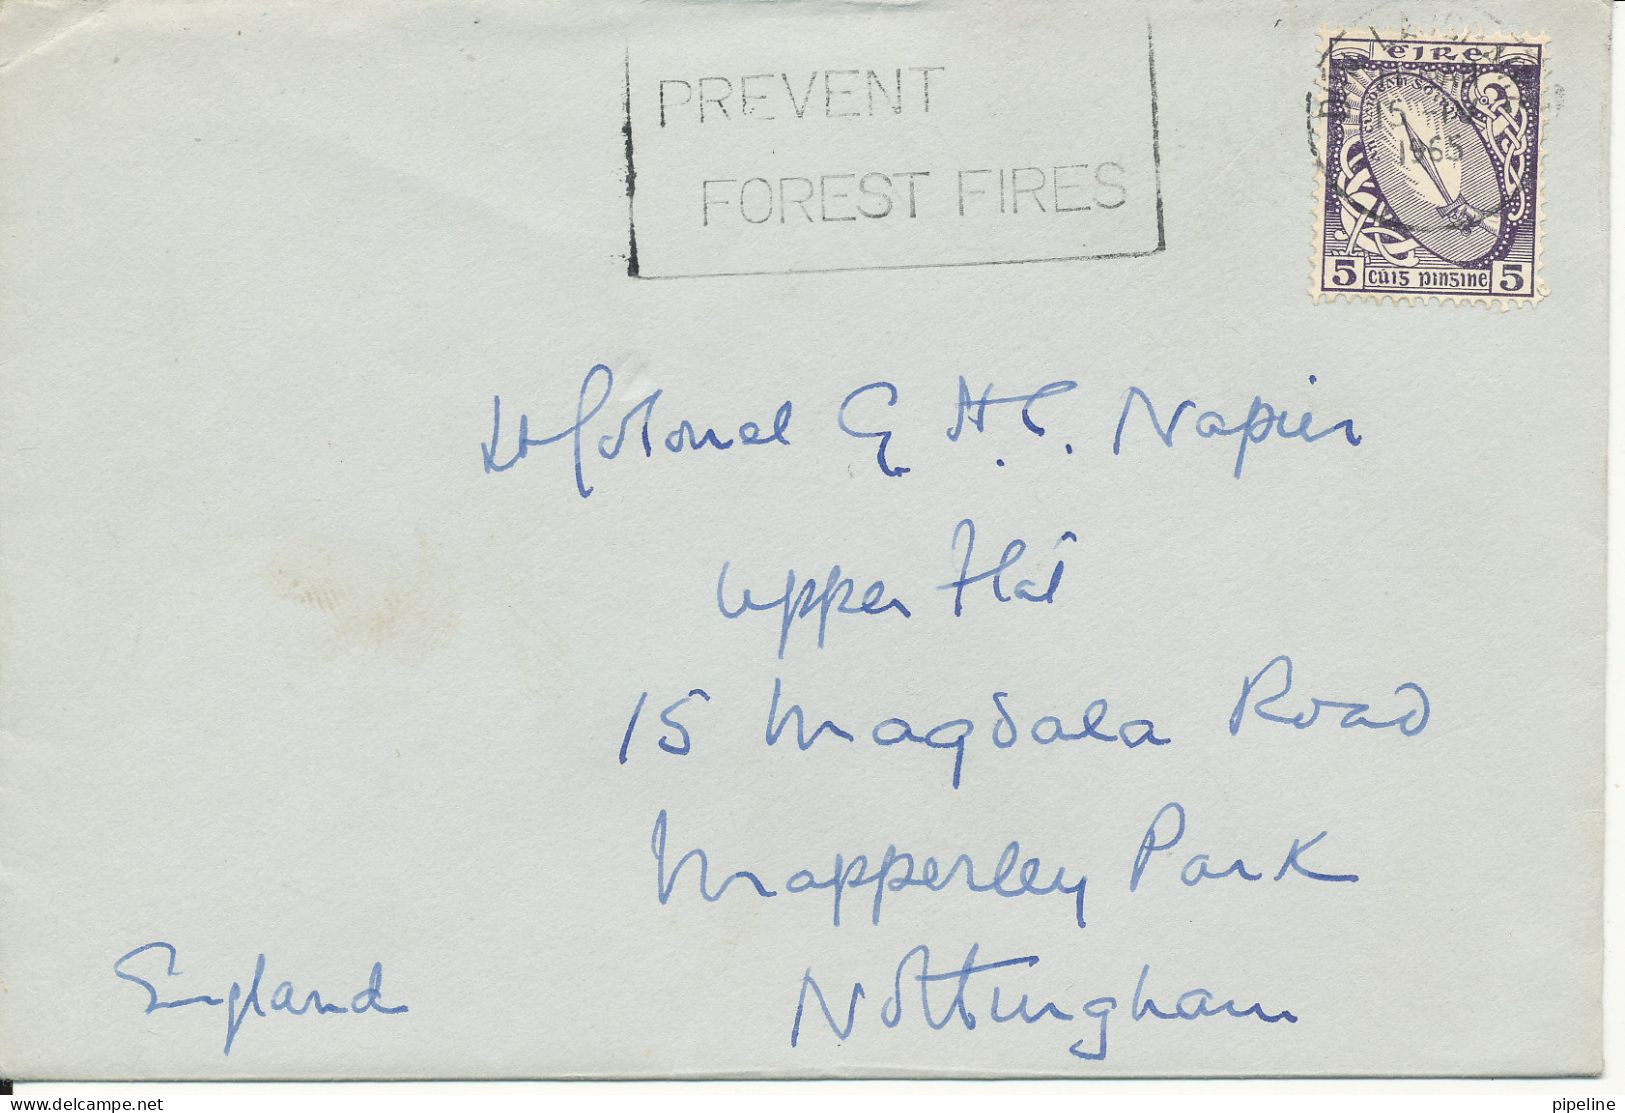 PREVENT
FOREST FIRES
éire
15
1965
5 cúig pingine 5
Lt Colonel G H.C. Napier
Upper Flat
15 Magdala Road
Mapperley Park
Nottingham
England
delcampe.net
pipeline